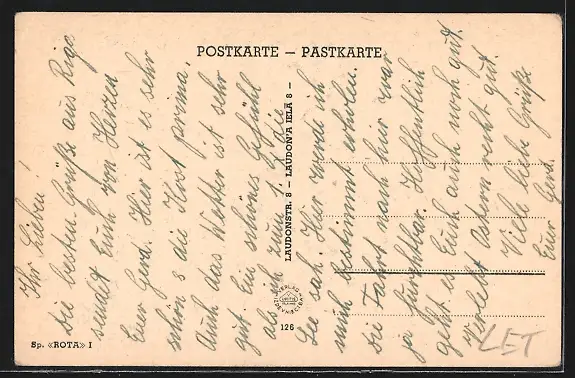 POSTKARTE – PASTKARTE
Ihr Lieben!
Die besten Grüße aus Riga
sendet Euch von Herzen
Euer Gerd. Hier ist es sehr
schön, die Kost prima,
Auch das Wetter ist sehr
gut. Ein schönes Gefühl
als ich zum 1. x die
See sah. Hier werde ich
mich bestimmt erholen.
Die Fahrt nach hier war
ja furchtbar. Hoffentlich
geht es Euch auch noch gut.
Verlebt Ostern recht gut.
Viele liebe Grüße
Euer Gerd.
LAUDONSTR. 8 – LAUDON'A IELĀ 8 –
126
Sp. «ROTA» I
LET